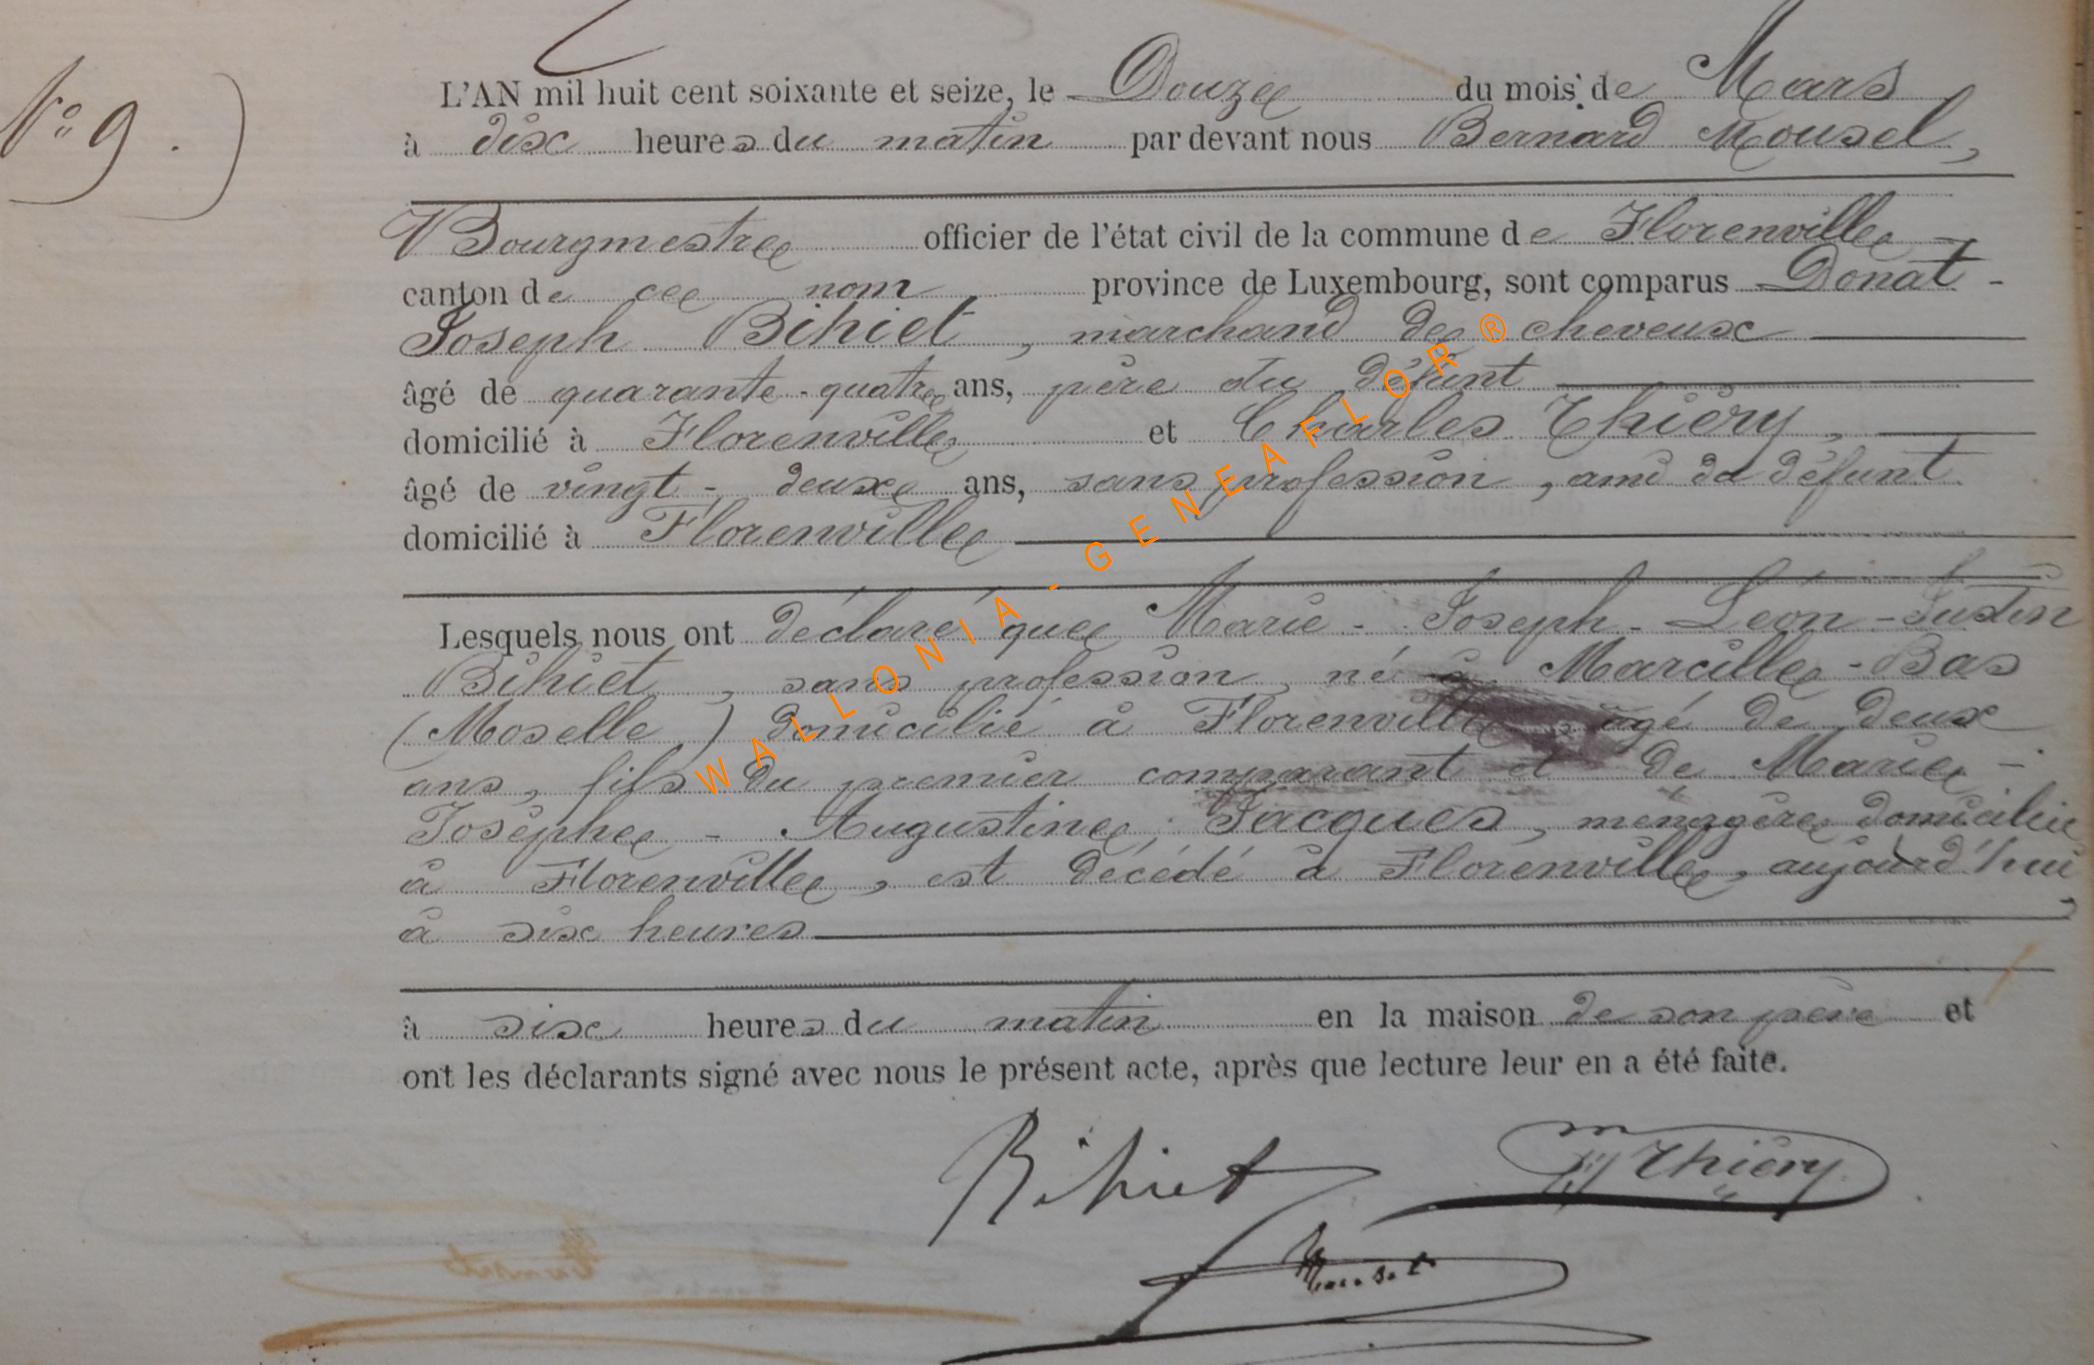 N° 9.
L'AN mil huit cent soixante et seize, le Douze du mois de Mars
à dix heures du matin par devant nous Bernard Mousel,
Bourgmestre officier de l'état civil de la commune de Florenville
canton de ce nom province de Luxembourg, sont comparus Donat-
Joseph Bihiet, marchand de cheveux
âgé de quarante-quatre ans, père du défunt
domicilié à Florenville et Charles Thiéry,
âgé de vingt-deux ans, sans profession, ami du défunt
domicilié à Florenville
Lesquels nous ont déclaré que Marie-Joseph-Léon-Justin
Bihiet, sans profession, né à Marville-Bas
(Moselle) domicilié à Florenville, âgé de deux
ans, fils du premier comparant et de Marie-
Josèphe-Augustine Jacques, ménagère domiciliée
à Florenville, est décédé à Florenville, aujourd'hui,
à six heures
à six heures du matin en la maison de son père et
ont les déclarants signé avec nous le présent acte, après que lecture leur en a été faite.
Bihiet Thiéry
WALLONIA-GENEAFLOR®